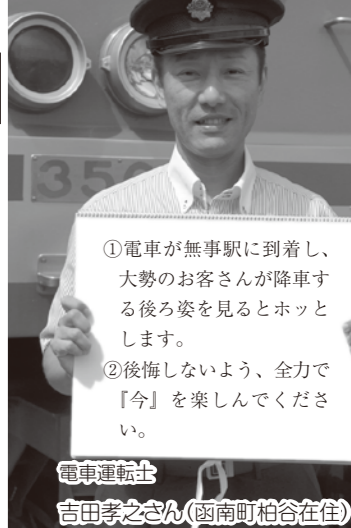 350
①電車が無事駅に到着し、
大勢のお客さんが降車す
る後ろ姿を見るとホッと
します。
②後悔しないよう、全力で
『今』を楽しんでくださ
い。
電車運転士
吉田孝之さん(函南町柏谷在住)